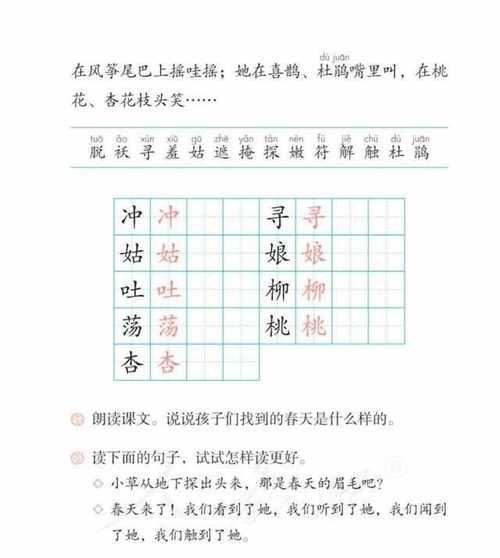 dù juān
在风筝尾巴上摇哇摇；她在喜鹊、杜鹃嘴里叫，在桃
花、杏花枝头笑……
tuō ǎo xún xiū gū zhē yǎn tàn nèn fú jiě chù dù juān
脱 袄 寻 羞 姑 遮 掩 探 嫩 符 解 触 杜 鹃
冲 冲 寻 寻
姑 姑 娘 娘
吐 吐 柳 柳
荡 荡 桃 桃
杏 杏
朗读课文。说说孩子们找到的春天是什么样的。
读下面的句子，试试怎样读更好。
◇ 小草从地下探出头来，那是春天的眉毛吧？
◇ 春天来了！我们看到了她，我们听到了她，我们闻到
了她，我们触到了她。